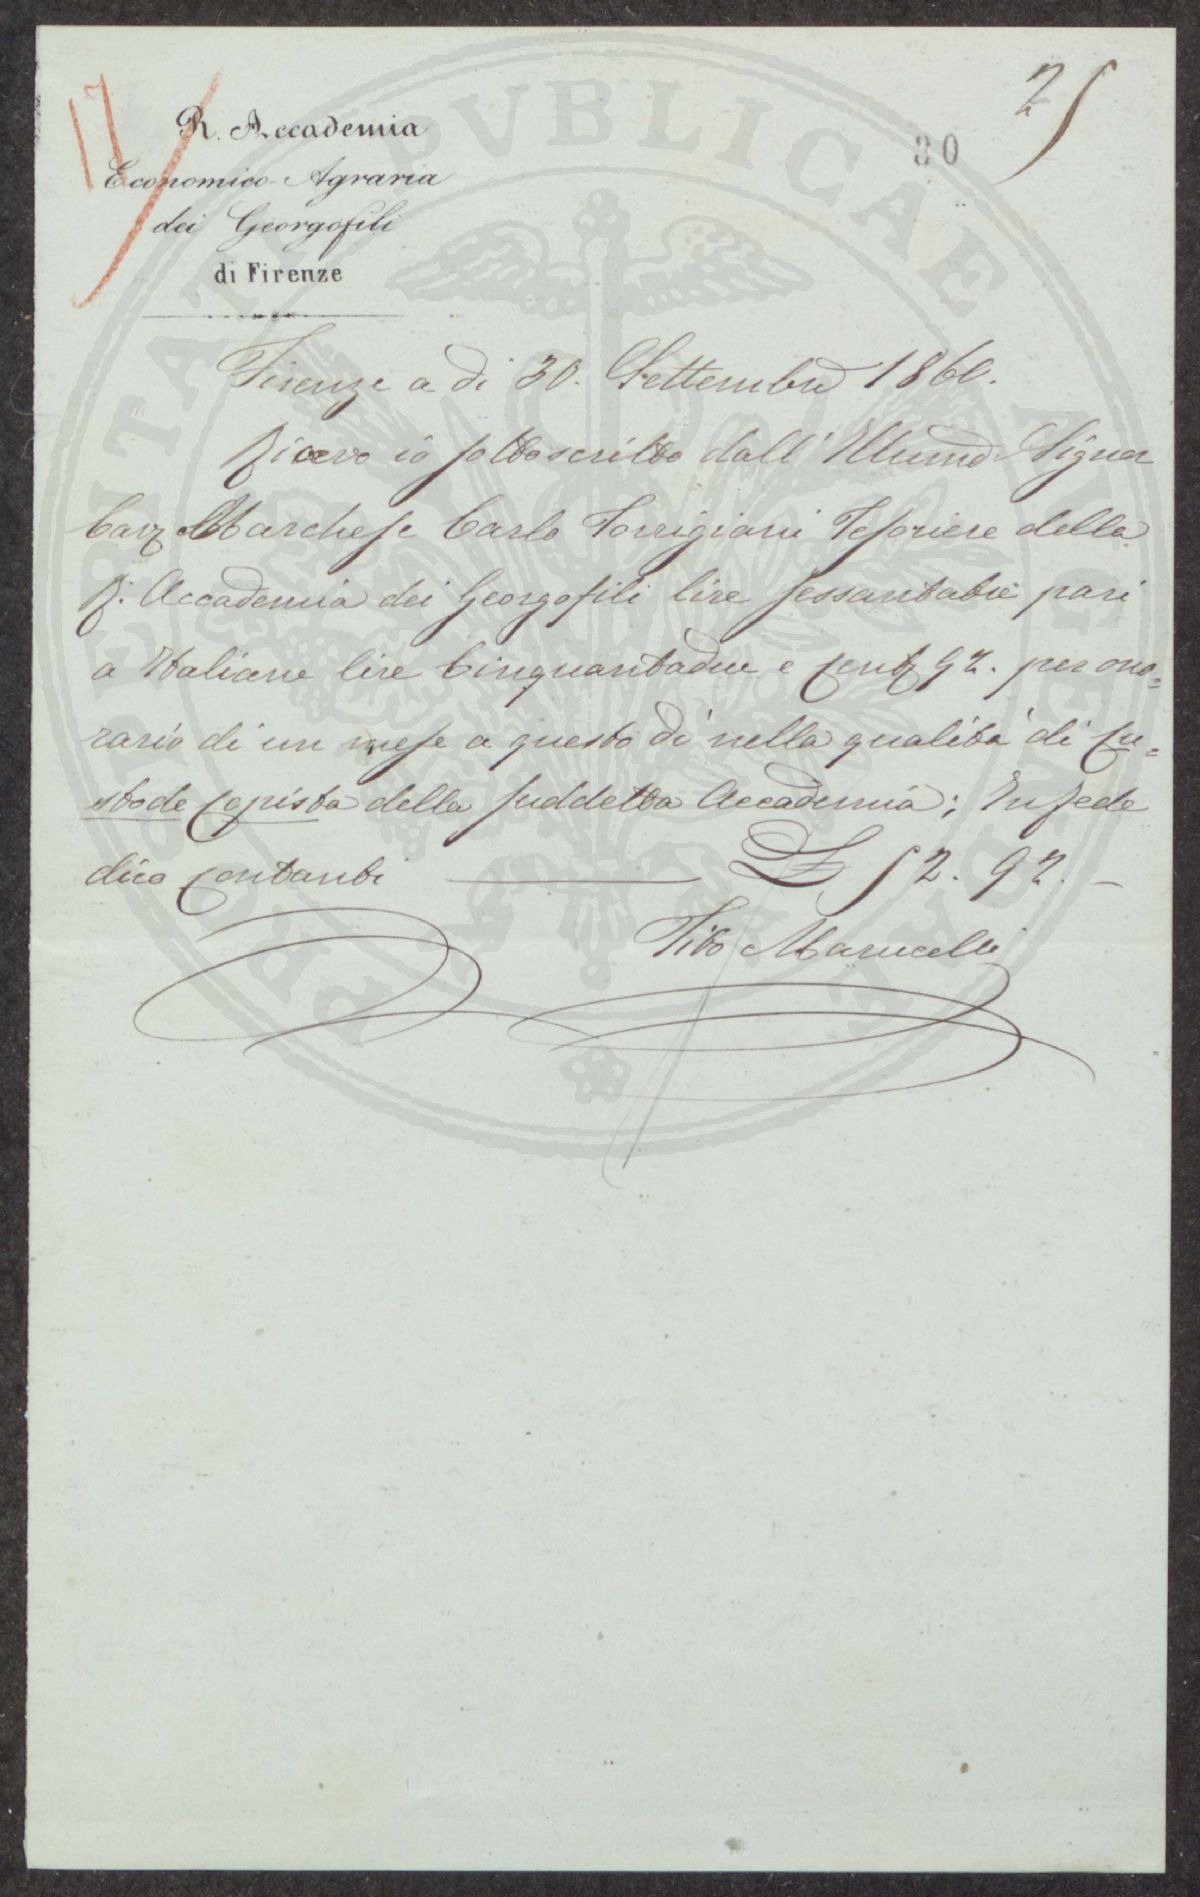 17
25
30
R. Accademia
Economico-Agraria
dei Georgofili
di Firenze
Firenze a dì 30. Settembre 1860.
Ricevo io sottoscritto dall' Illumo Signor
Cavr Marchese Carlo Torrigiani Tesoriere della
R. Accademia dei Georgofili lire sessantatre pari
a Italiane lire Cinquantadue e Cent. 92. per ono=
rario di un mese a questo dì nella qualità di Cu=
stode Copista della suddetta Accademia; In fede
dico contanti L 52. 92. —
Tito Marucelli
PROSPERITATI PVBLICAE AVGENDAE